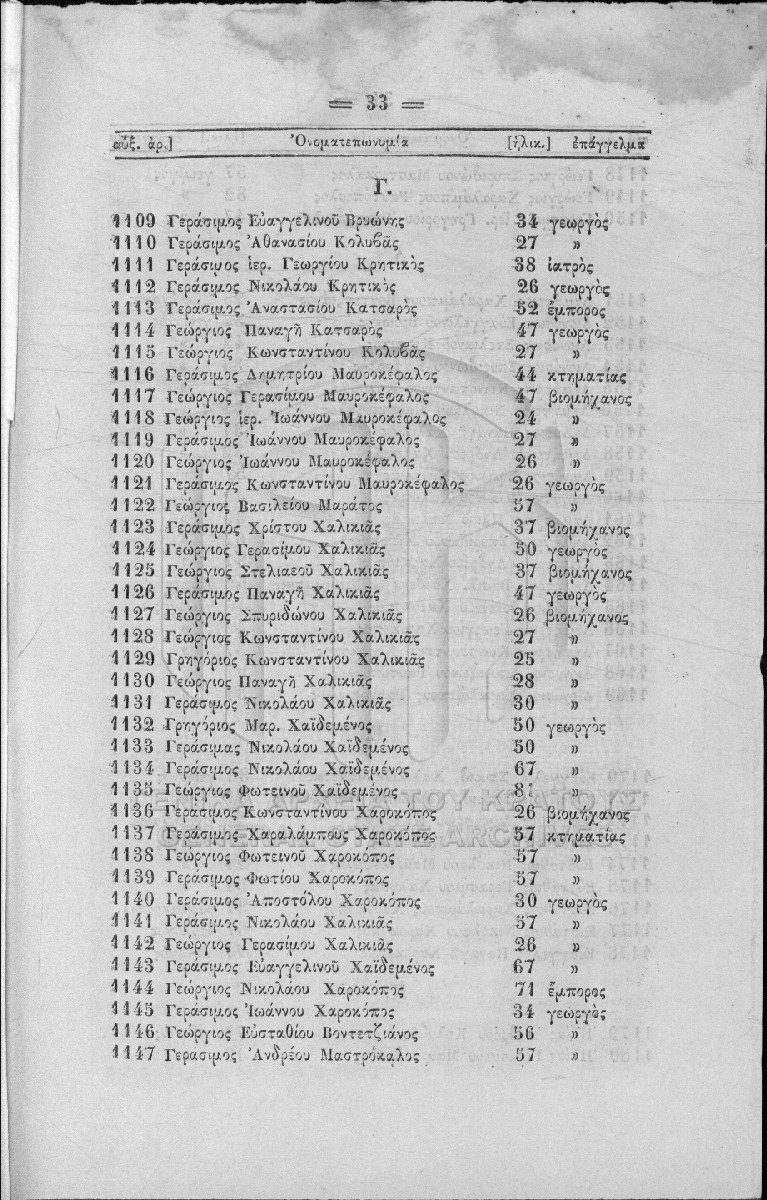 = 33 =
αὔξ. ἀρ.] Ὀνοματεπωνυμία [ἡλικ.] ἐπάγγελμα
Γ.
1109 Γεράσιμος Εὐαγγελινοῦ Βρυώνης 34 γεωργὸς
1110 Γεράσιμος Ἀθανασίου Κολυβᾶς 27 »
1111 Γεράσιμος ἱερ. Γεωργίου Κρητικὸς 38 ἰατρὸς
1112 Γεράσιμος Νικολάου Κρητικὸς 26 γεωργὸς
1113 Γεράσιμος Ἀναστασίου Κατσαρὸς 52 ἔμπορος
1114 Γεώργιος Παναγῆ Κατσαρὸς 47 γεωργὸς
1115 Γεώργιος Κωνσταντίνου Κολυβᾶς 27 »
1116 Γεράσιμος Δημητρίου Μαυροκέφαλος 44 κτηματίας
1117 Γεώργιος Γερασίμου Μαυροκέφαλος 47 βιομήχανος
1118 Γεώργιος ἱερ. Ἰωάννου Μαυροκέφαλος 24 »
1119 Γεράσιμος Ἰωάννου Μαυροκέφαλος 27 »
1120 Γεώργιος Ἰωάννου Μαυροκέφαλος 26 »
1121 Γεράσιμος Κωνσταντίνου Μαυροκέφαλος 26 γεωργὸς
1122 Γεώργιος Βασιλείου Μαράτος 57 »
1123 Γεράσιμος Χρίστου Χαλικιᾶς 37 βιομήχανος
1124 Γεώργιος Γερασίμου Χαλικιᾶς 50 γεωργὸς
1125 Γεώργιος Στελιαεοῦ Χαλικιᾶς 37 βιομήχανος
1126 Γεράσιμος Παναγῆ Χαλικιᾶς 47 γεωργὸς
1127 Γεώργιος Σπυριδώνου Χαλικιᾶς 26 βιομήχανος
1128 Γεώργιος Κωνσταντίνου Χαλικιᾶς 27 »
1129 Γρηγόριος Κωνσταντίνου Χαλικιᾶς 25 »
1130 Γεώργιος Παναγῆ Χαλικιᾶς 28 »
1131 Γεράσιμος Νικολάου Χαλικιᾶς 30 »
1132 Γρηγόριος Μαρ. Χαϊδεμένος 50 γεωργὸς
1133 Γεράσιμας Νικολάου Χαϊδεμένος 50 »
1134 Γεράσιμος Νικολάου Χαϊδεμένος 67 »
1135 Γεώργιος Φωτεινοῦ Χαϊδεμένος »
1136 Γεράσιμος Κωνσταντίνου Χαροκόπος 26 βιομήχανος
1137 Γεράσιμος Χαραλάμπους Χαροκόπος 57 κτηματίας
1138 Γεώργιος Φωτεινοῦ Χαροκόπος 57 »
1139 Γεράσιμος Φωτίου Χαροκόπος 57 »
1140 Γεράσιμος Ἀποστόλου Χαροκόπος 30 γεωργὸς
1141 Γεράσιμος Νικολάου Χαλικιᾶς 57 »
1142 Γεώργιος Γερασίμου Χαλικιᾶς 26 »
1143 Γεράσιμος Εὐαγγελινοῦ Χαϊδεμένος 67 »
1144 Γεώργιος Νικολάου Χαροκόπος 71 ἔμπορος
1145 Γεράσιμος Ἰωάννου Χαροκόπος 34 γεωργὸς
1146 Γεώργιος Εὐσταθίου Βοντετζιάνος 56 »
1147 Γεράσιμος Ἀνδρέου Μαστρόκαλος 57 »